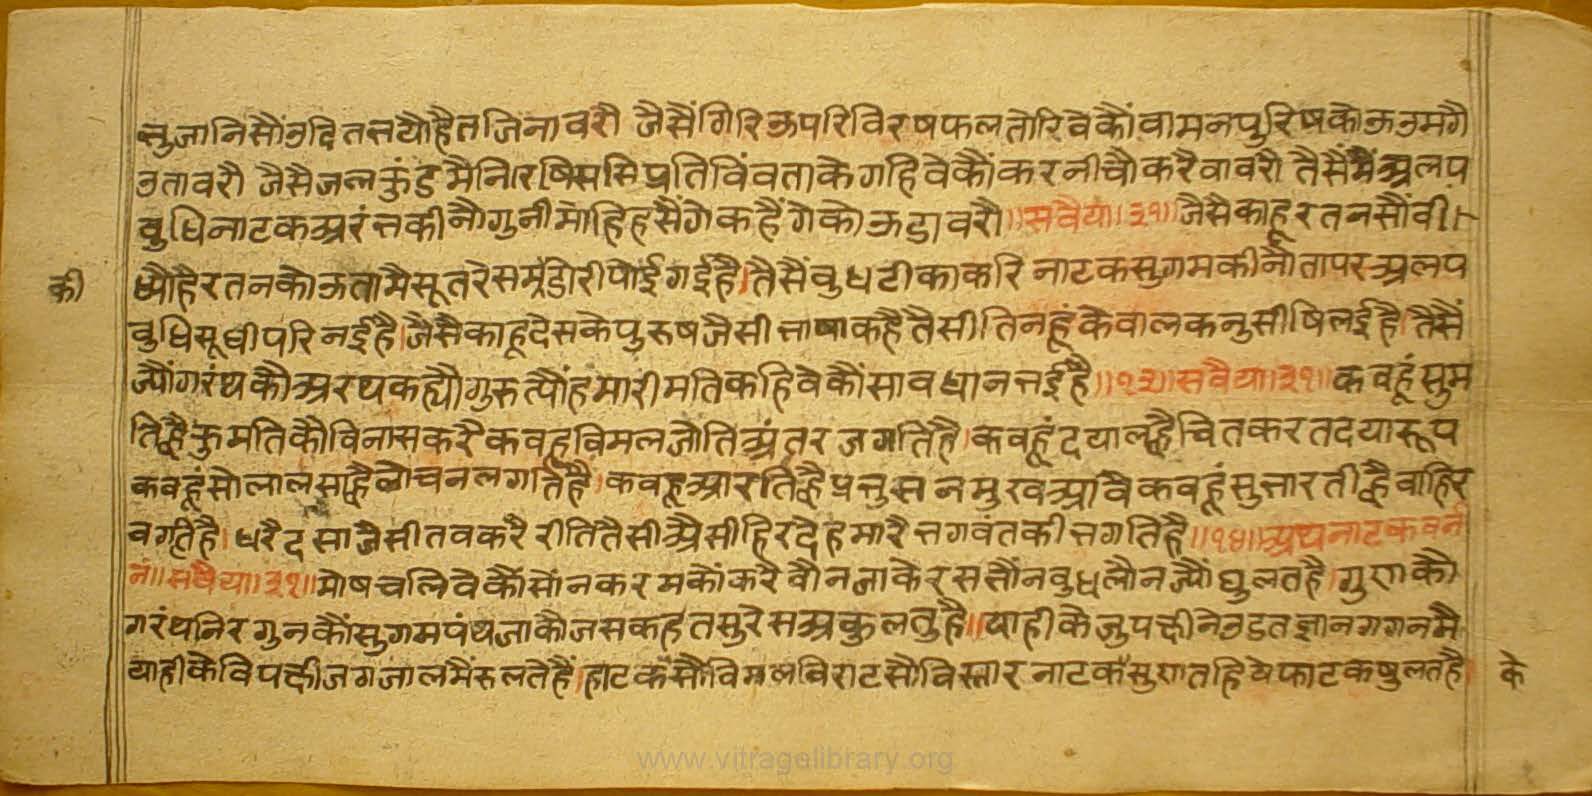 भुजानिसौंउदितभयोहैतजिनावरौ जैसैंगिरिऊपरिविरषफलतोरिवेकौंवामनपुरिषकोऊउमगै
उतावरौ जैसैजलकुंडमैनिरषिससिप्रतिविंवताकेगहिवेकौंकरनीचौकरैवावरौ तैसैंमैंअलप
वुधिनाटकअरंभकीनौगुनीमोहिहसैंगेकहैंगेकोऊडावरौ॥सवैया।३१॥जैसैकाहूरतनसौंवी
की
ध्यौहैरतनकोऊतामैसूतरेसमडोरीपोईगईहै।तैसैंवुधटीकाकरि नाटकसुगमकीनौतापरअलप
वुधिसूधीपरिनईहै।जैसैकाहूदेसकेपुरुषजैसीभाषाकहैतैसीतिनहूंकेवालकनुसीषिलईहै।तैसैं
ज्यौंगरंथकौअरथकह्यौगुरुत्यौंहमारीमतिकहिवेकौंसावधानभईहै॥१३॥सवैया।३१॥कवहूंसुम
तिह्वैकुमतिकौविनासकरैकवहूविमलजोतिअंतरजगतिहै।कवहूंदयालह्वैचितकरतदयारूप
कवहूंसोलालसाह्वैलोचनलगतिहै।कवहूआरतिह्वैप्रभुसनमुखआवैकवहूंसुभारतीह्वैवाहिर
वगतिहै।धरैदसाजैसीतवकरैरीतितैसीअैसीहिरदैहमारैभगवंतकीभगतिहै॥१४॥अथनाटकवर्न
नं॥सवैया।३१॥मोषचलिवेकौंसौंनकरमकौंकरैवौनजाकेरससौंनवुधलौनज्यौंघुलतहै।गुणकौ
गरंथनिरगुनकौंसुगमपंथजाकौजसकहतसुरेसअकुलतुहै॥याहीकेजुपक्षीतेउडतज्ञानगगनमै
याहीकेविपक्षीजगजालमैंरुलतेहैं।हाटकसौविमलविराटसौविस्तारनाटकसुणतहियेफाटकषुलतहै।
के
www.vitragelibrary.org